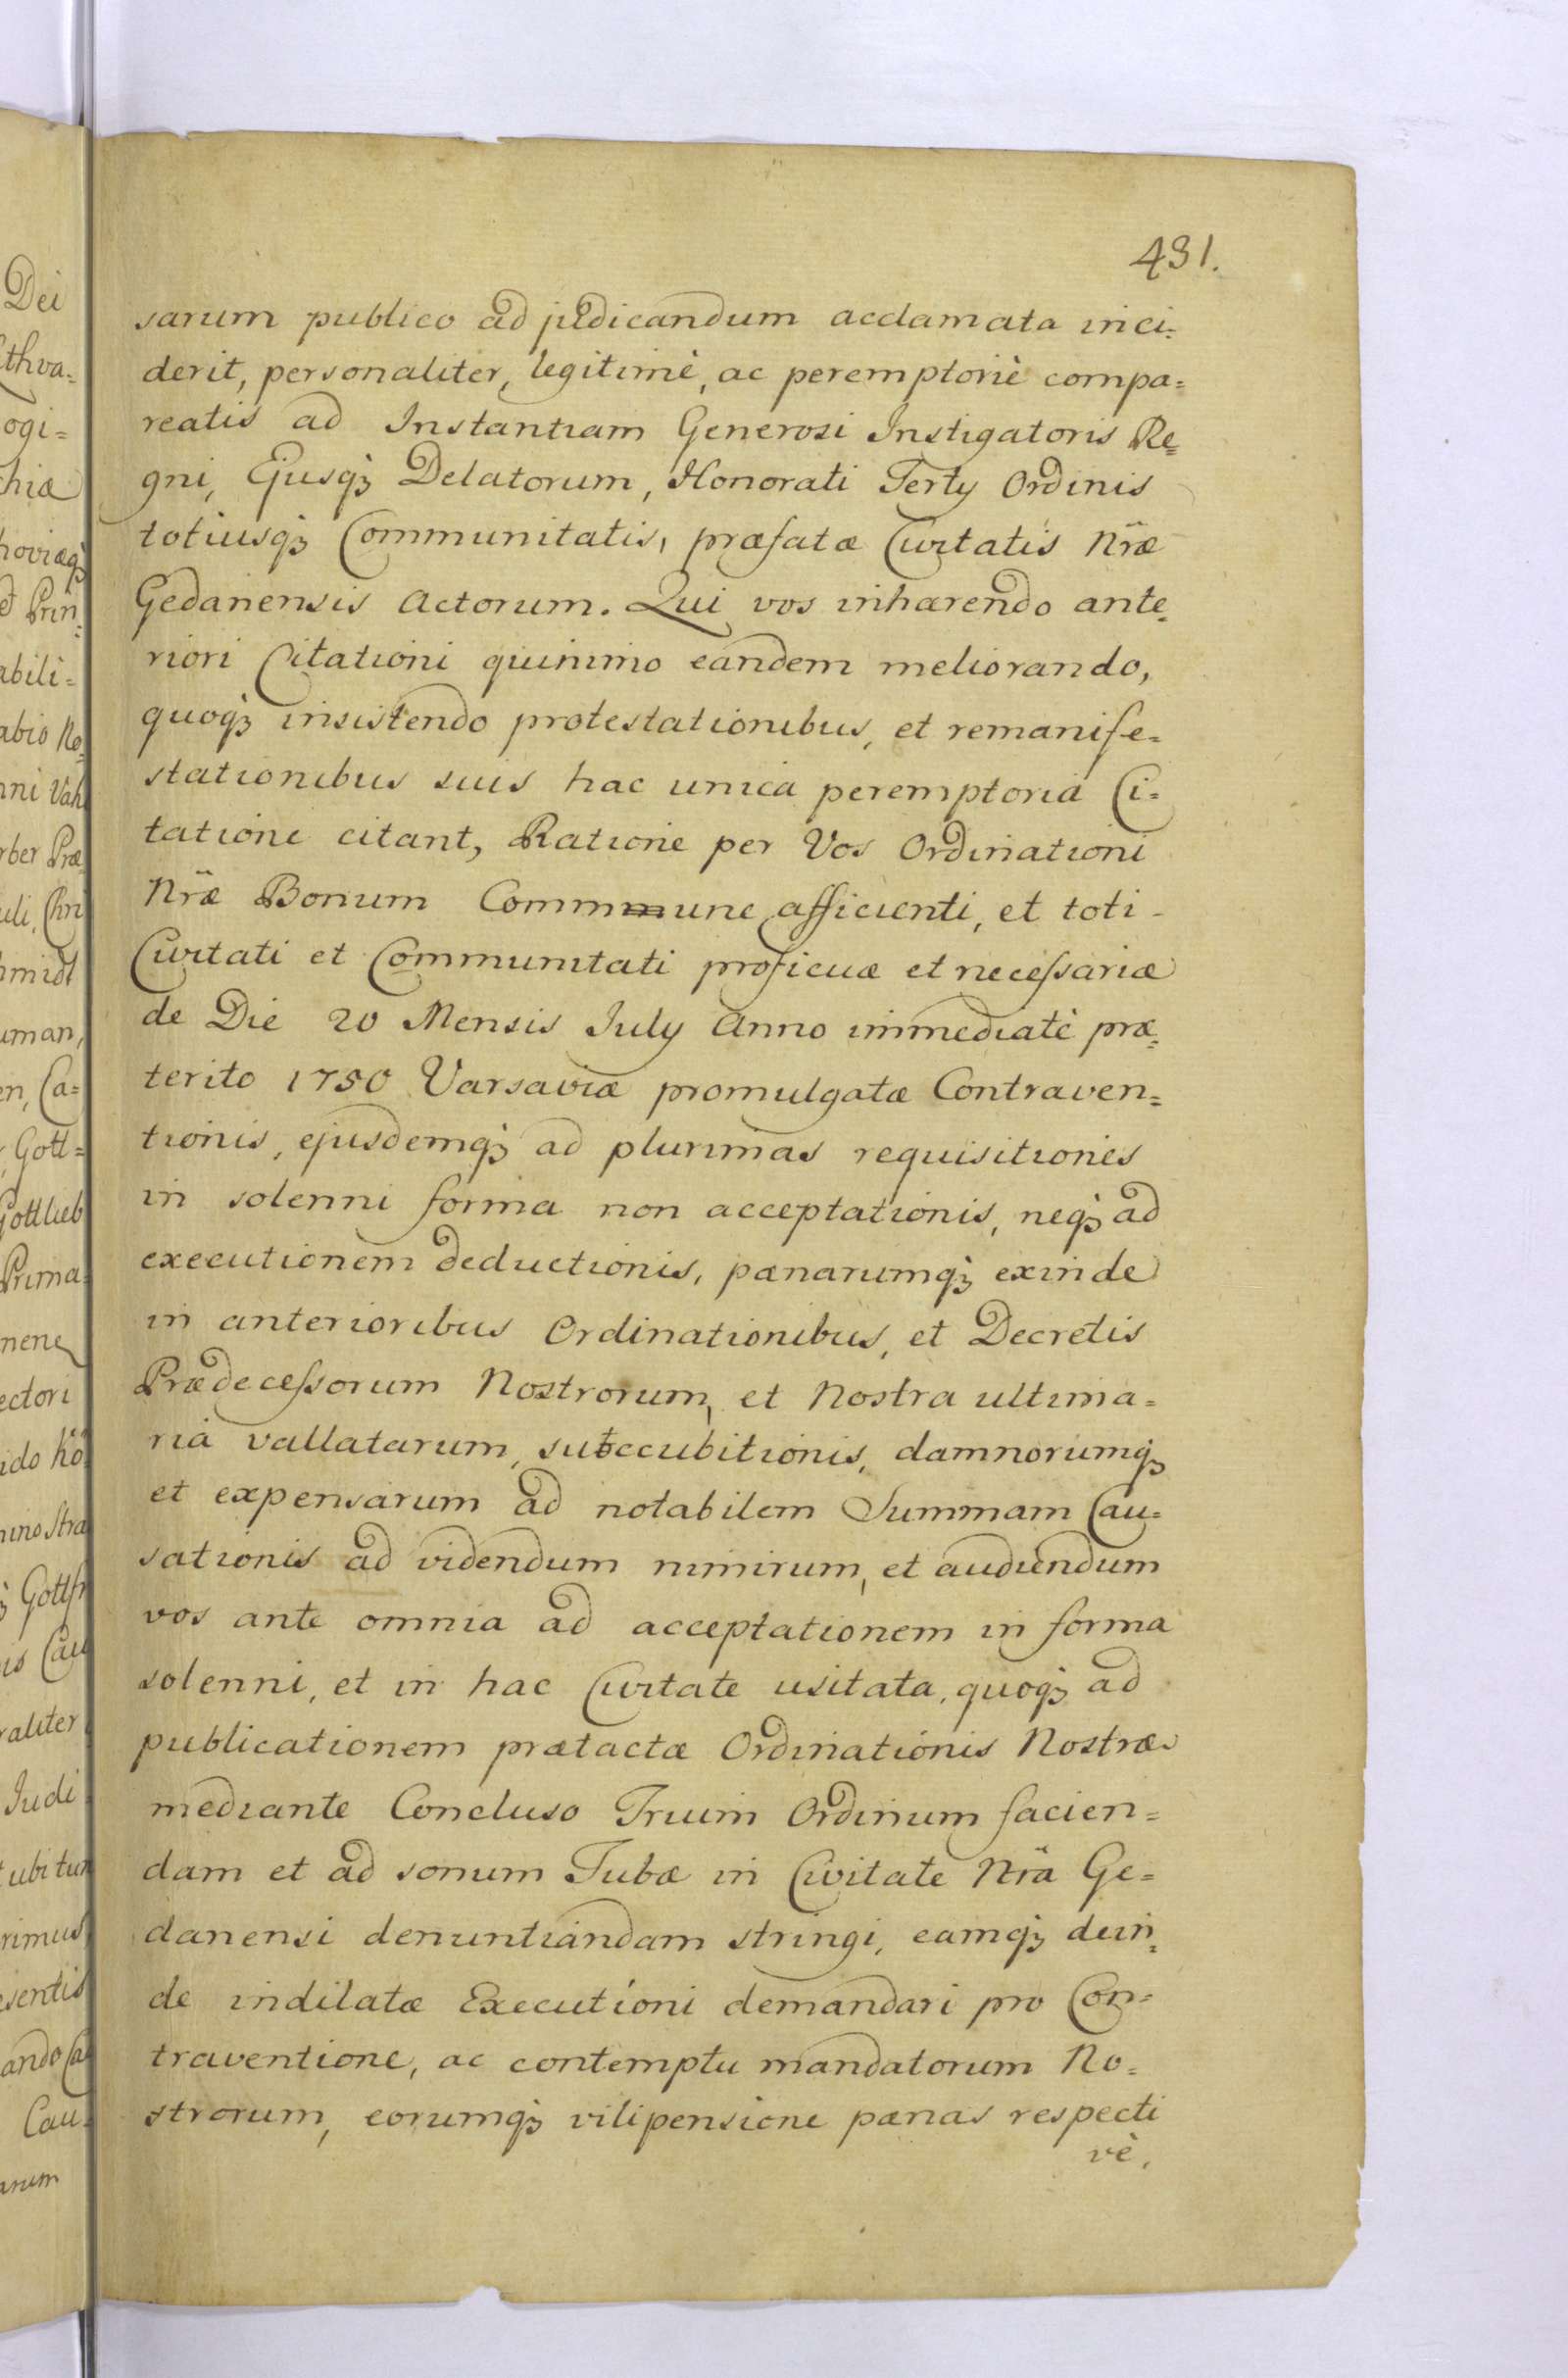 431.
sarum publico ad judicandum acclamata inci=
derit, personaliter, legitimè, ac peremptoriè compa=
reatis ad Instantiam Generosi Instigatoris Re=
gni, Ejusq́; Delatorum, Honorati Tertÿ Ordinis
totiusq́; Communitatis, præfatæ Civitatis Nr̃æ
Gedanensis Actorum. Qui vos inhærendo ante=
riori Citationi quinimo eandem meliorando,
quoq́; insistendo protestationibus, et remanife=
stationibus suis hac unica peremptoria Ci=
tatione citant, Ratione per Vos Ordinationi
Nr̃æ Bonum Commune afficienti, et toti
Civitati et Communitati proficuæ et necessariæ
de Die 20 Mensis Julÿ Anno immediatè præ=
terito 1750 Varsaviæ promulgatæ Contraven=
tionis, ejusdemq́; ad plurimas requisitiones
in solenni forma non acceptationis, neq́; ad
executionem deductionis, pænarumq́; exinde
in anterioribus Ordinationibus, et Decretis
Prædecessorum Nostrorum, et Nostra ultima=
ria vallatarum, subccubitionis, damnorumq́;
et expensarum ad notabilem Summam Cau=
sationis ad videndum nimirum, et audiendum
vos ante omnia ad acceptationem in forma
solenni, et in hac Civitate usitata, quoq́; ad
publicationem prætactæ Ordinationis Nostræ
mediante Concluso Trium Ordinum facien=
dam et ad sonum Tubæ in Civitate Nr̃a Ge=
danensi denuntiandam stringi, eamq́; dein=
de indilatæ Executioni demandari pro Con=
traventione, ac contemptu mandatorum No=
strorum, eorumq́; vilipensione pænas respecti
vè,
Dei
ogi=
hiæ
abili=
abio No=
nni Vah
rber Præ
hmidt
uman,
en, Ca=
Gottl=
Gottlieb
Prima=
mene
ectori
ido
nino Stra
Gottfr
is Cau
raliter
Judi
ubi tur
rimus
esentis
ando Ca
Cau=
arum